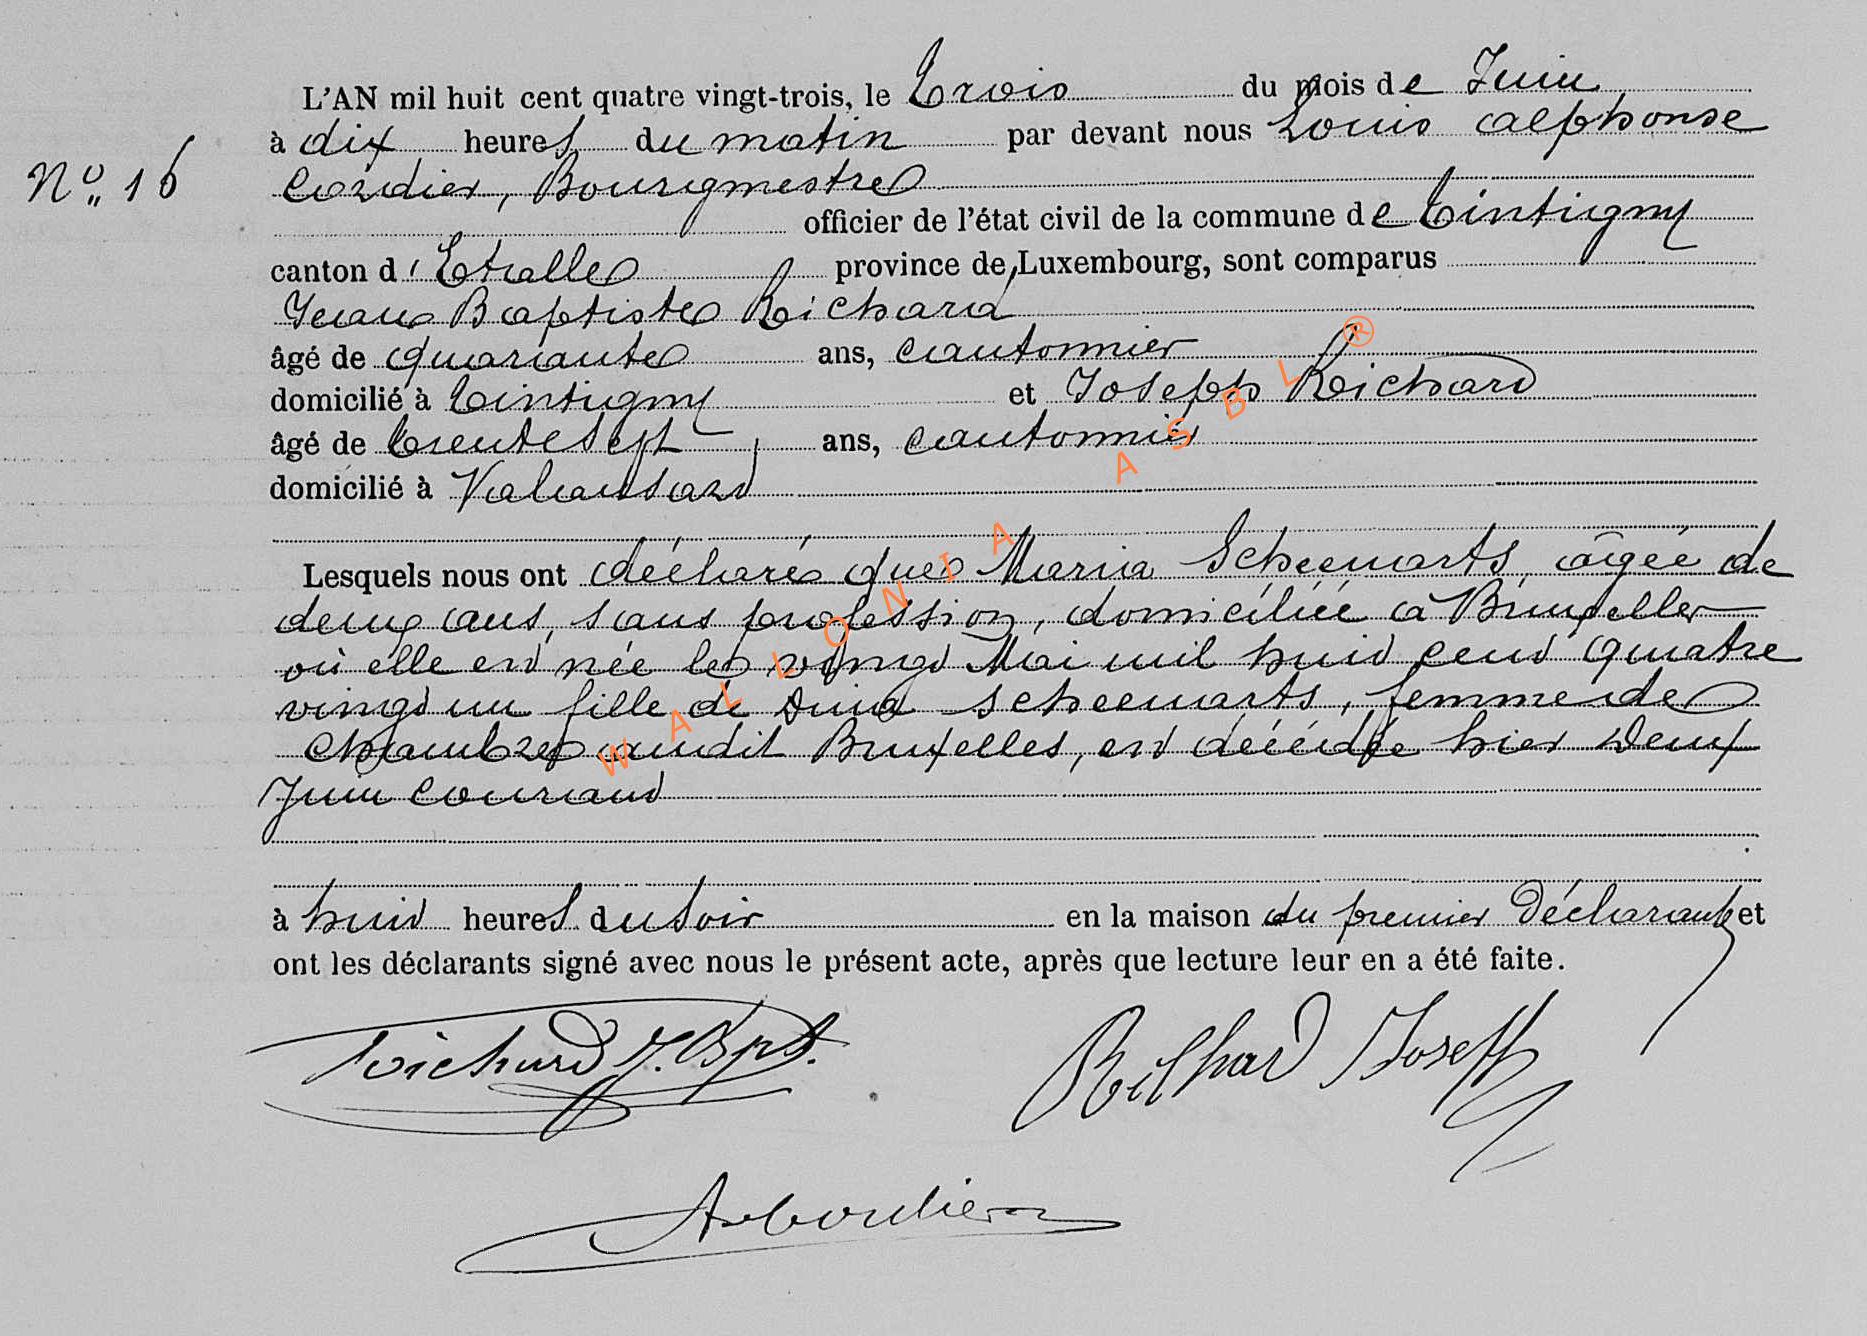 L'AN mil huit cent quatre vingt-trois, le trois du mois de Juin
à dix heures du matin par devant nous Louis Alphonse
N° 16 Cordier, Bourgmestre
officier de l'état civil de la commune de Tintigny
canton d'Etalle province de Luxembourg, sont comparus
Jean Baptiste Richard
âgé de quarante ans, cantonnier
domicilié à Tintigny et Joseph Richard
âgé de trente sept ans, cantonnier
domicilié à Valansard
Lesquels nous ont déclaré que Maria Scheewarts, âgée de
deux ans, sans profession, domiciliée à Bruxelles
où elle est née le vingt Mai mil huit cent quatre
vingt un fille de Scheewarts, femme de
chambre audit Bruxelles, est décédée hier deux
Juin courant
à huit heures du soir en la maison du premier Déclarant et
ont les déclarants signé avec nous le présent acte, après que lecture leur en a été faite.
Richard J. Bpt. Richard Joseph
WALLONIA ASBL ®